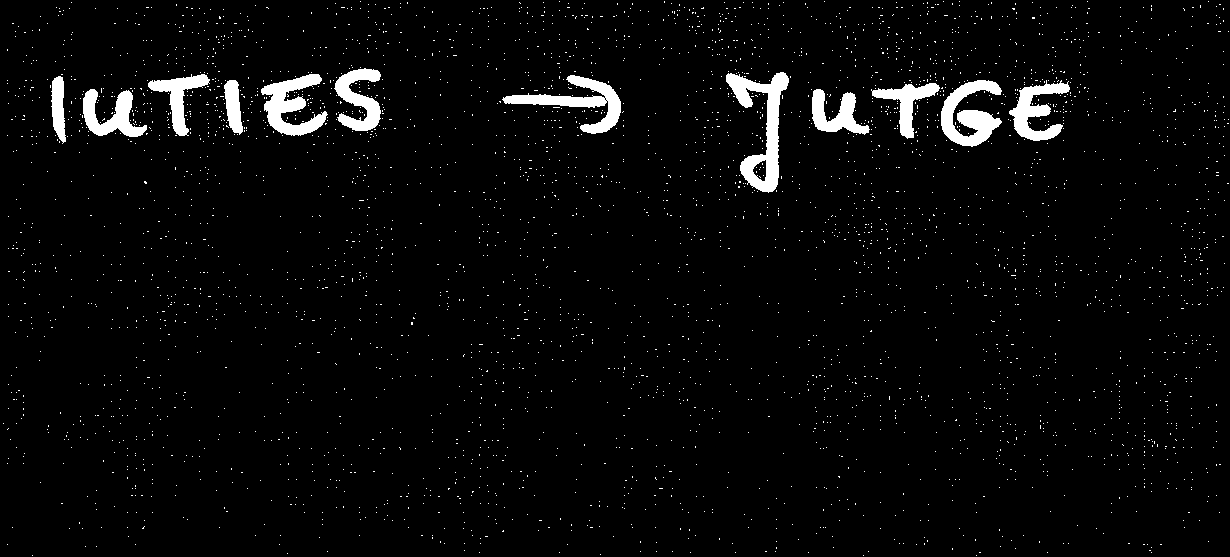 IUTIES → JUTGE